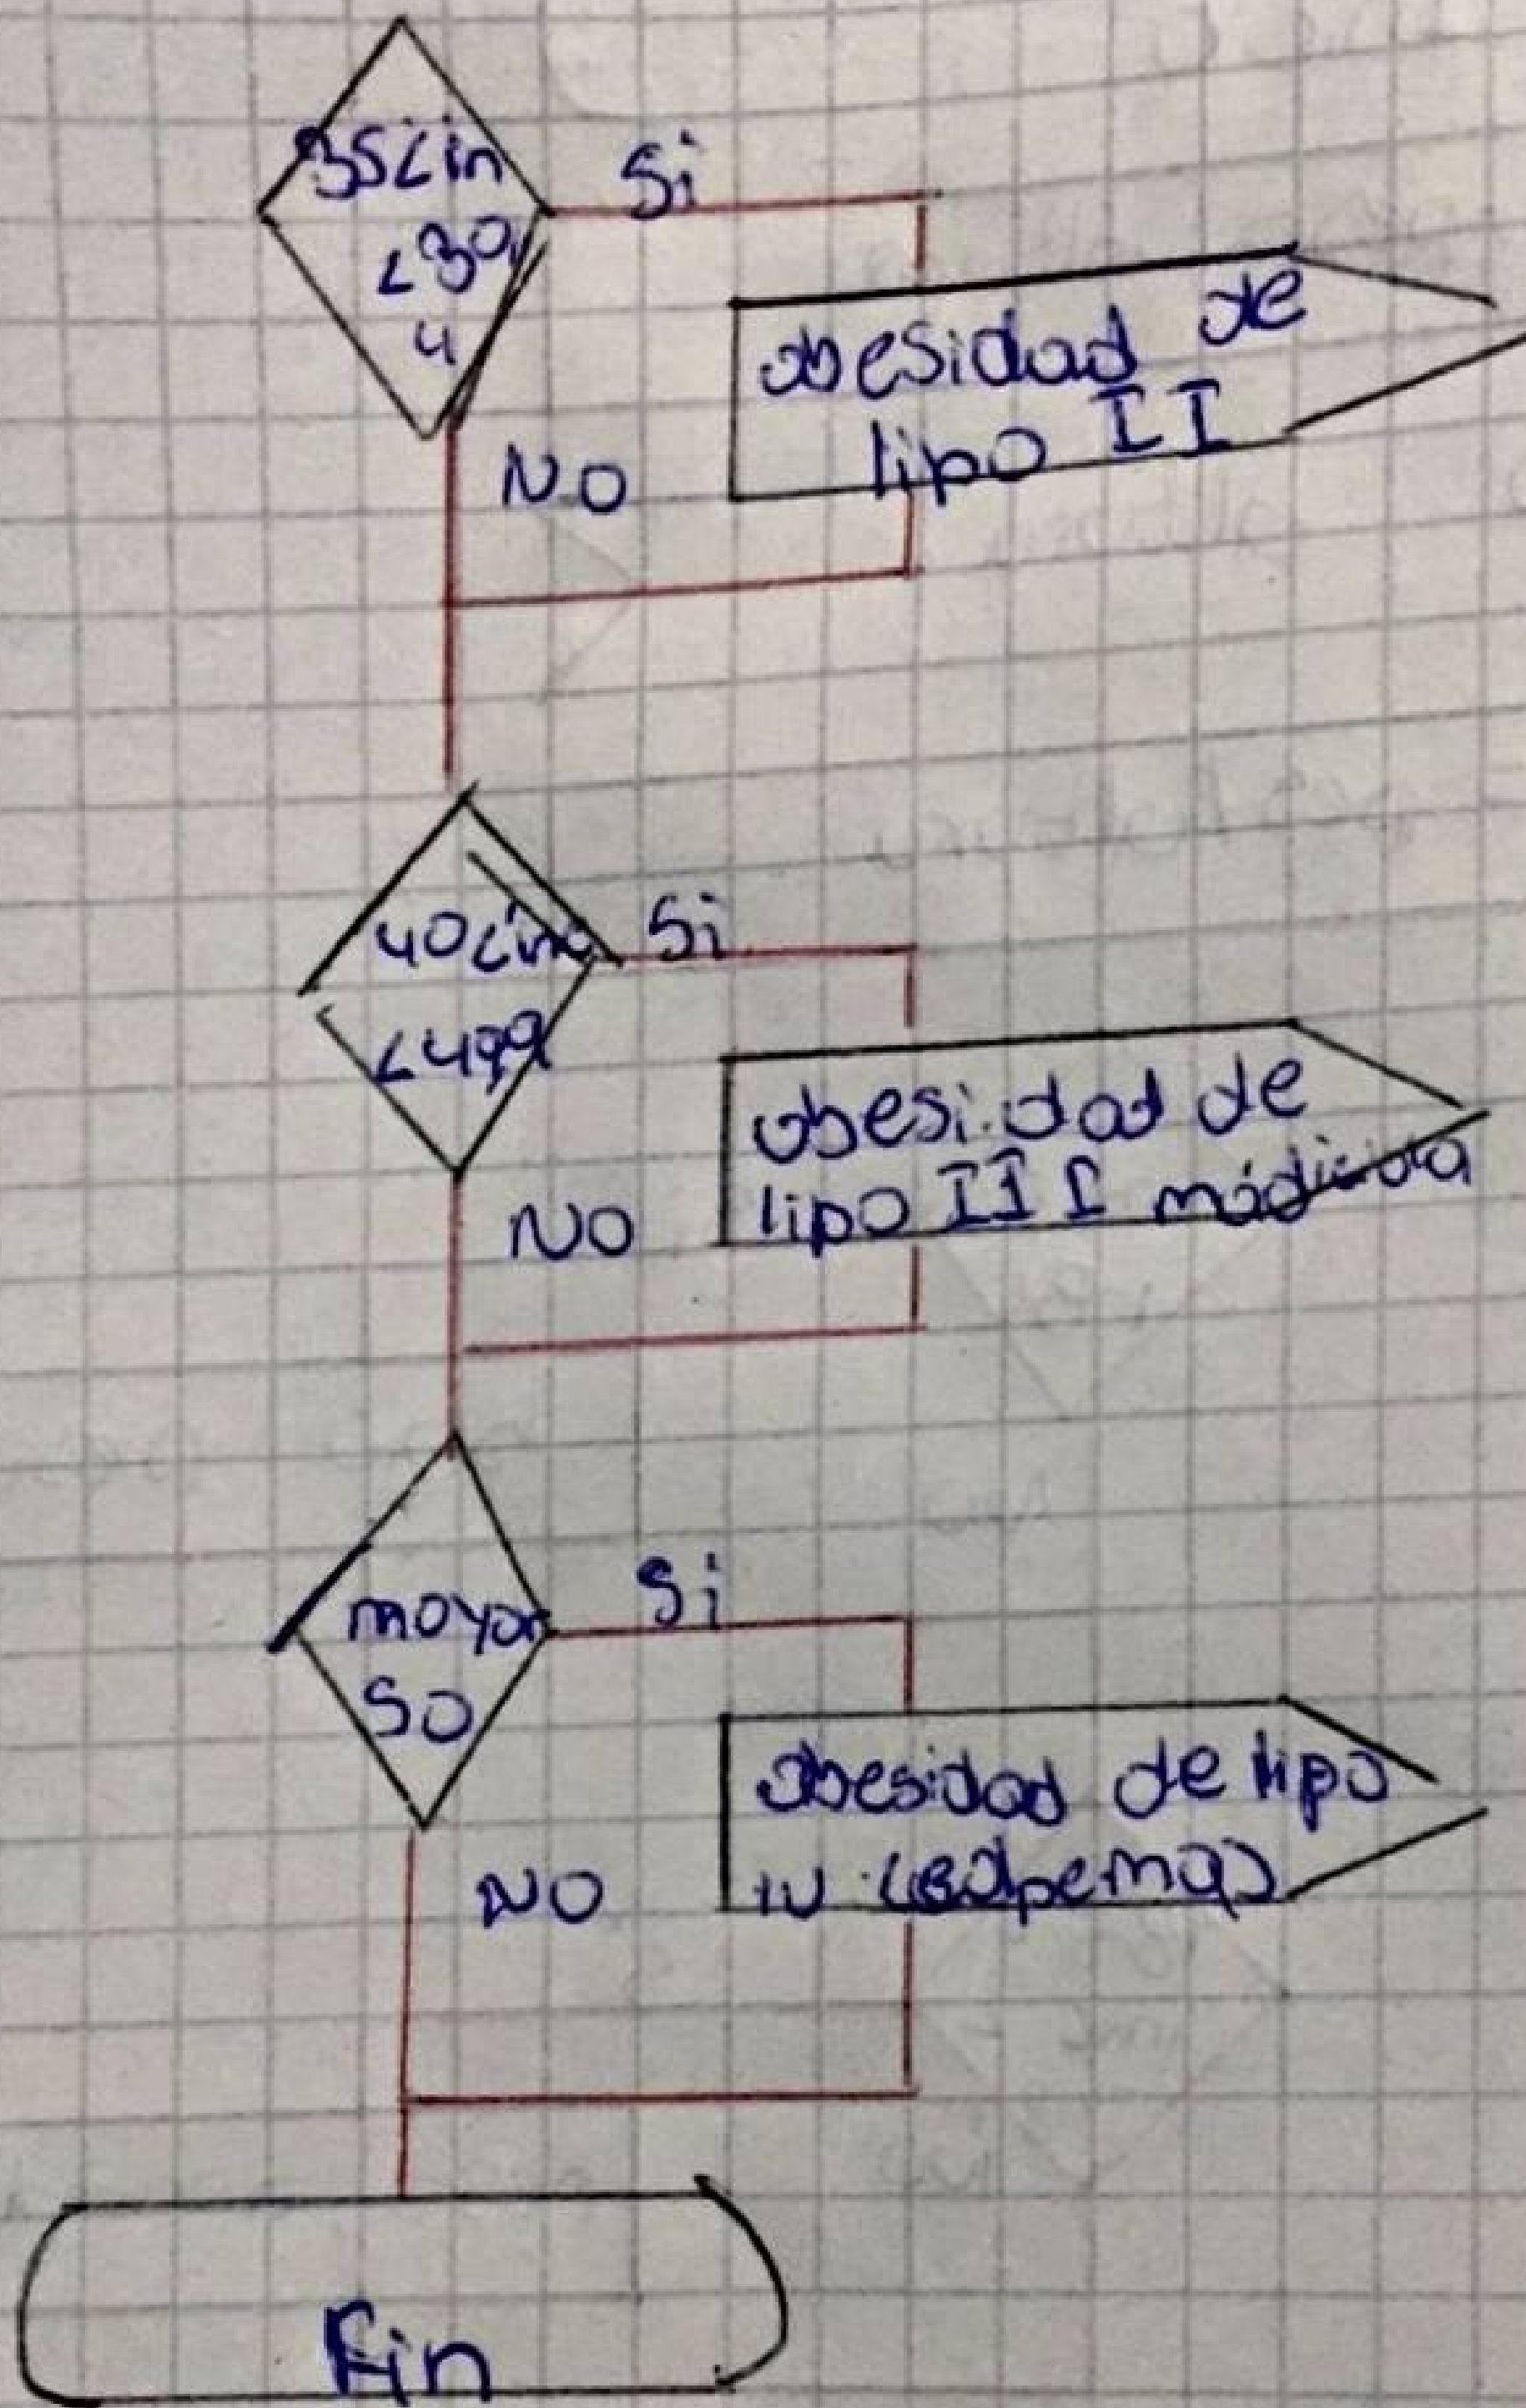 35<in
<39,
4
Si
obesidad de
tipo II
NO
40<in
<499
Si
obesidad de
tipo III
NO
mayor
50
Si
obesidad de tipo
IV
NO
Fin